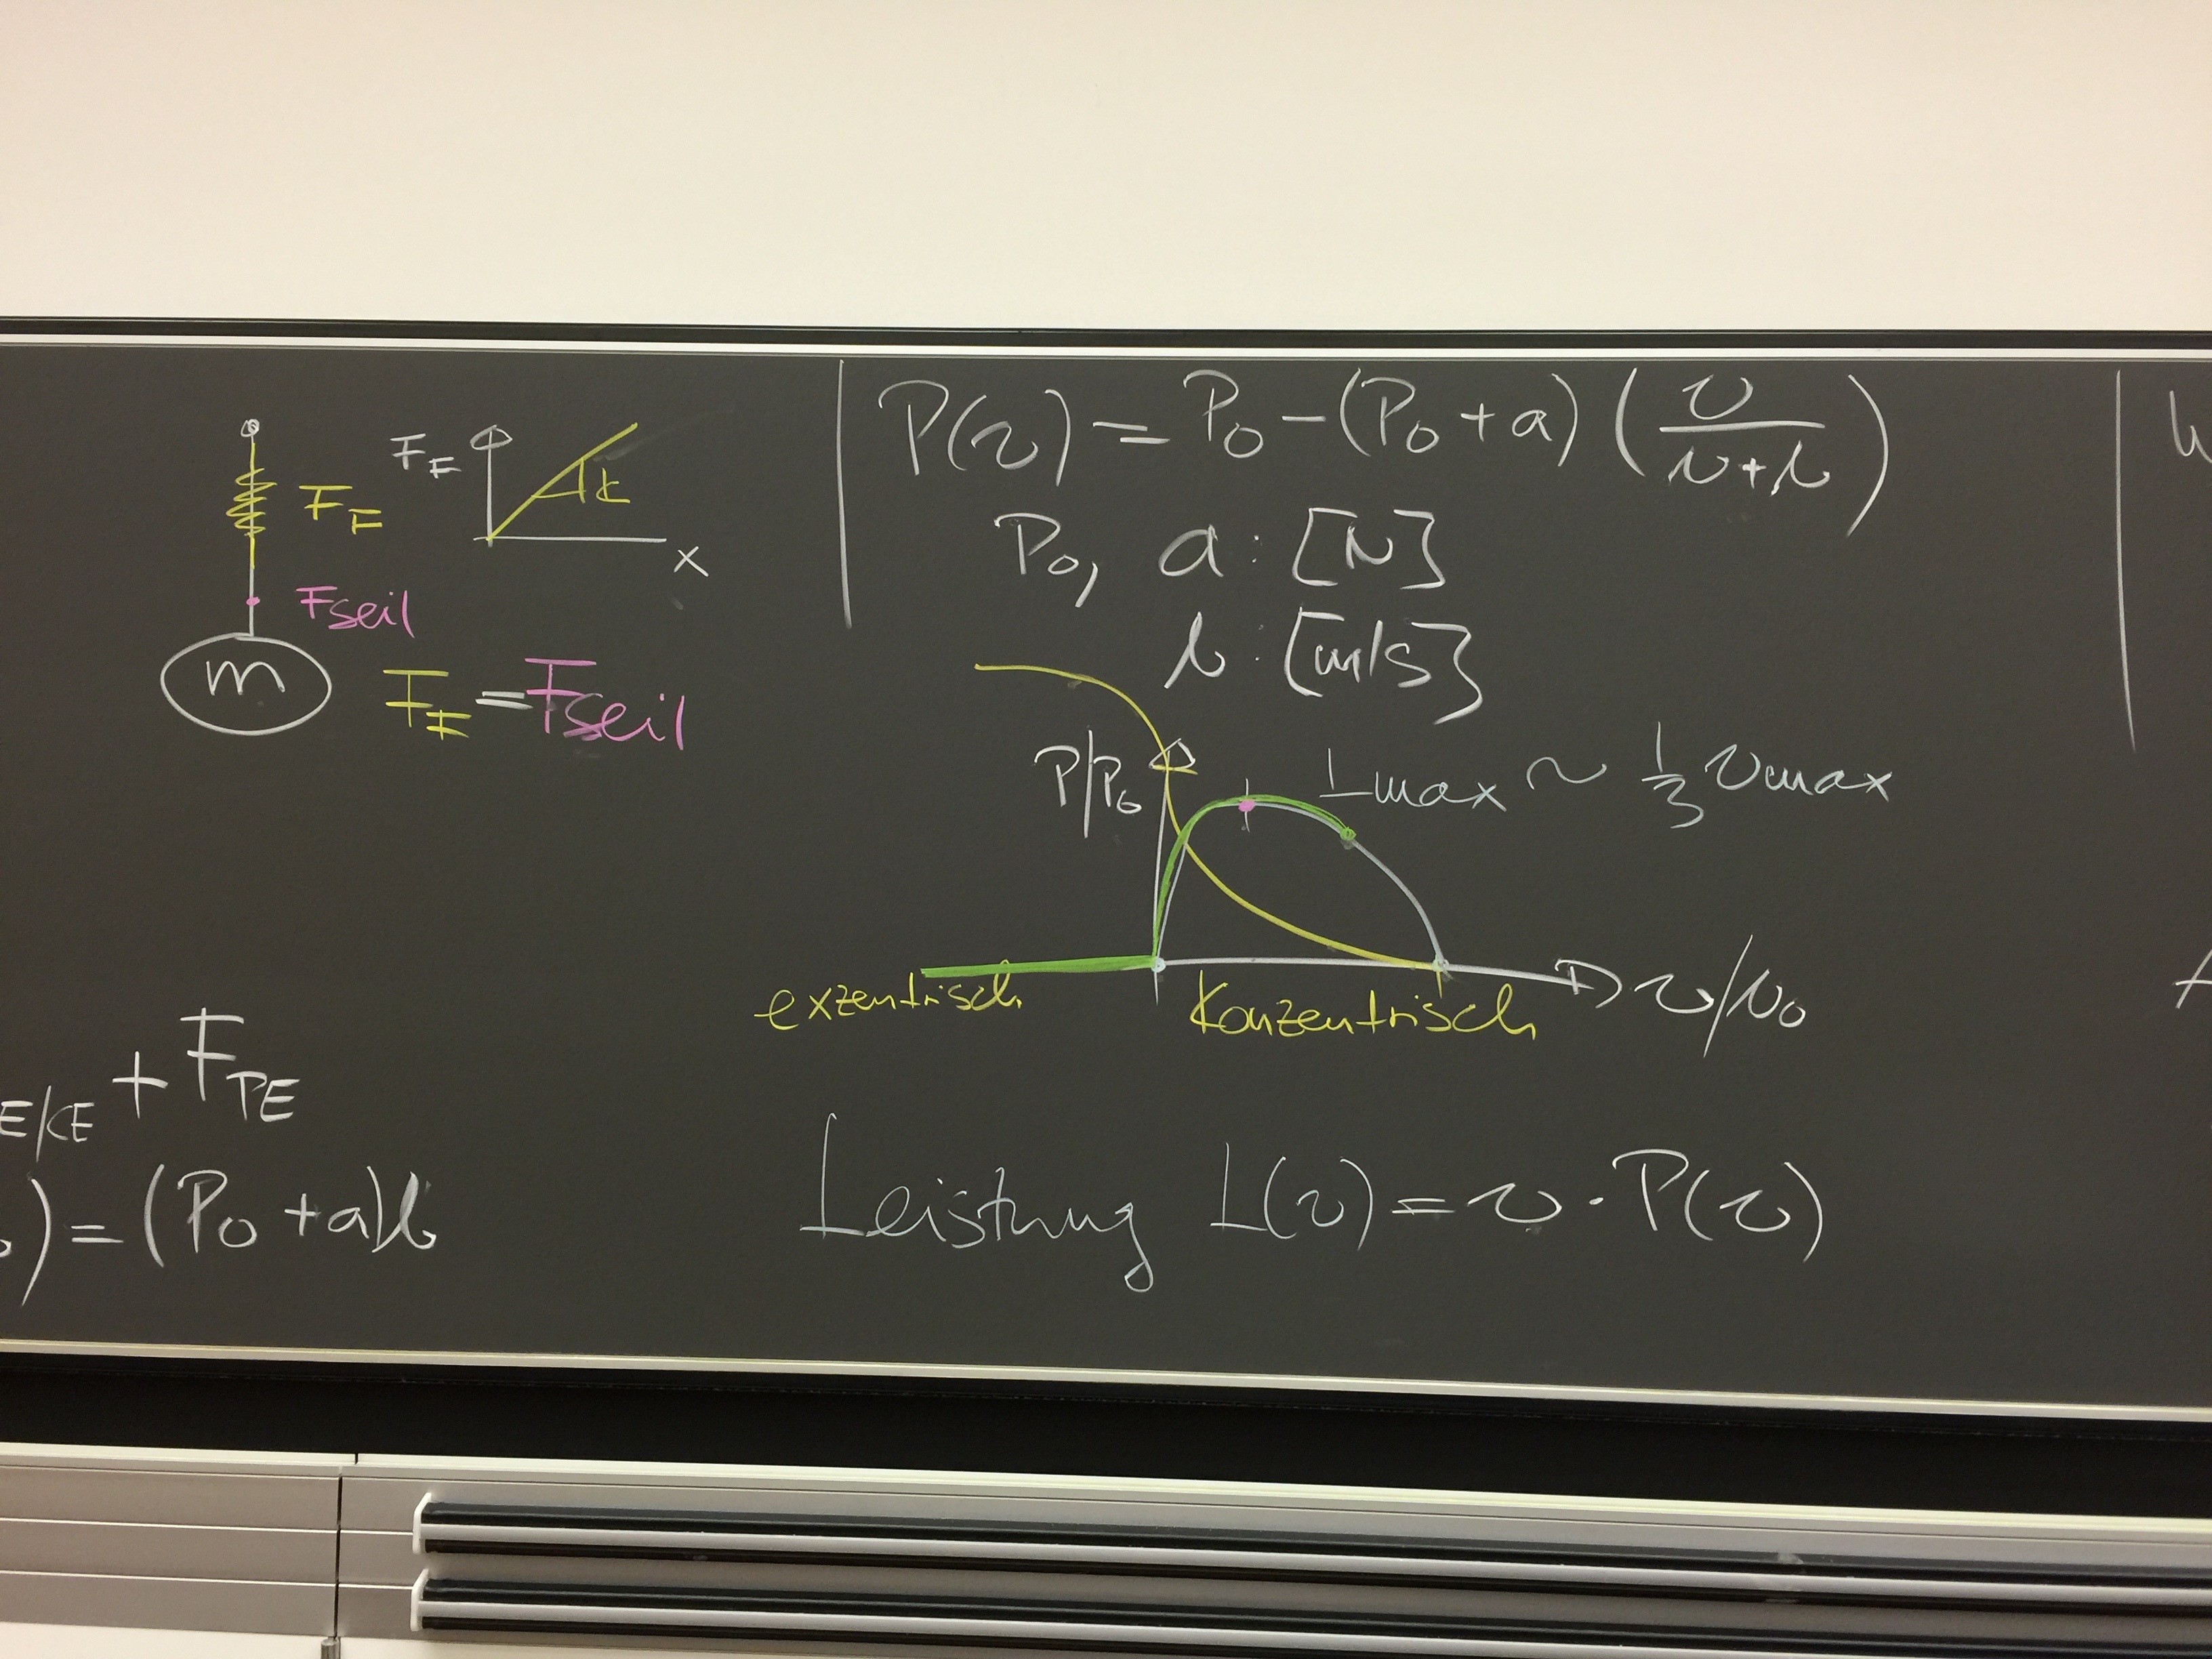 F_F
F_F
k
x
Fseil
m
F_F = Fseil
E/CE + F_PE
) = (P₀ + a)b
P(v) = P₀ - (P₀ + a) (v/(v+b))
P₀, a : [N]
b : [m/s]
P/P₀
Lmax ~ 1/3 vmax
exzentrisch
Konzentrisch
v/v₀
Leistung L(v) = v · P(v)